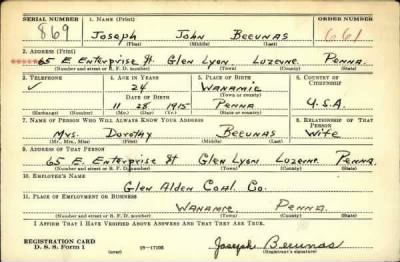 SERIAL NUMBER 1. NAME (Print) ORDER NUMBER
869 Joseph John Beeunas 661
(First) (Middle) (Last)
2. ADDRESS (Print)
65 E. Enterprise St. Glen Lyon Luzerne Penna.
(Number and street or R. F. D. number) (Town) (County) (State)
3. TELEPHONE 4. AGE IN YEARS 5. PLACE OF BIRTH 6. COUNTRY OF CITIZENSHIP
✓ 24 Wanamie
DATE OF BIRTH (Town or county)
11 28 1915 Penna U.S.A.
(Mo.) (Day) (Yr.) (State or country)
7. NAME OF PERSON WHO WILL ALWAYS KNOW YOUR ADDRESS 8. RELATIONSHIP OF THAT PERSON
Mrs. Dorothy Beeunas Wife
(Mr., Mrs., Miss) (First) (Middle) (Last)
9. ADDRESS OF THAT PERSON
65 E. Enterprise St Glen Lyon Luzerne Penna.
(Number and street or R. F. D. number) (Town) (County) (State)
10. EMPLOYER'S NAME
Glen Alden Coal Co.
11. PLACE OF EMPLOYMENT OR BUSINESS
Wanamie Penna.
(Number and street or R. F. D. number) (Town) (County) (State)
I AFFIRM THAT I HAVE VERIFIED ABOVE ANSWERS AND THAT THEY ARE TRUE.
REGISTRATION CARD
D. S. S. Form 1 (over) 16—17106 Joseph Beeunas
(Registrant's signature)